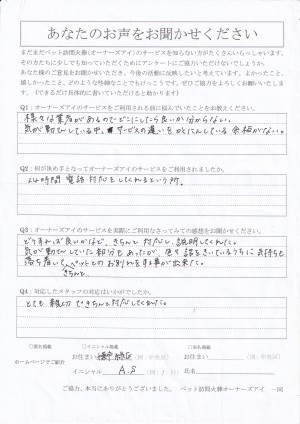 あなたのお声をお聞かせください
まだまだペット訪問火葬(オーナーズアイ)のサービスを知らない方がたくさんいらっしゃいます。
その方たちに少しでも知っていただくためにアンケートにご協力いただけないでしょうか。
あなた様のご意見をお聞かせいただき、今後の活動に反映したいと考えています。よかったこと、
嬉しかったこと、どのような些細なことでもけっこうです。ぜひご協力をよろしくお願いいたしま
す。(できるだけ具体的に書いていただけると助かります)
Q1:オーナーズアイのサービスをご利用される前に悩んでいたことをお教えください。
様々な業者があるのでどこにしたら良いか分からない。
気が動てんしている中、サービスの違いをひとにんしている余裕がない。
Q2:何が決め手となってオーナーズアイのサービスをご利用されましたか。
24時間 電話対応をしてくれるという所。
Q3:オーナーズアイのサービスを実際にご利用になさってみての感想をお聞かせください。
どうすれば良いかなど、きちんと対応し、説明してくれた。
気が動てんしていた部分もあったが、色々話をきいているうちに気持ちも
落ち着いて、ペットとのお別れをする事が出来た。
きちんと
Q4:対応したスタッフの対応はいかがでしたか。
とても親切できちんと対応してくれた。
□匿名掲載 □イニシャル掲載 □実名掲載
ホームページでご紹介
お住まい (例:中央区) お住まい (例:中央区)
イニシャル A.S (例:J.H) 氏名
ご協力、本当にありがとうございました。 ペット訪問火葬オーナーズアイ 一同